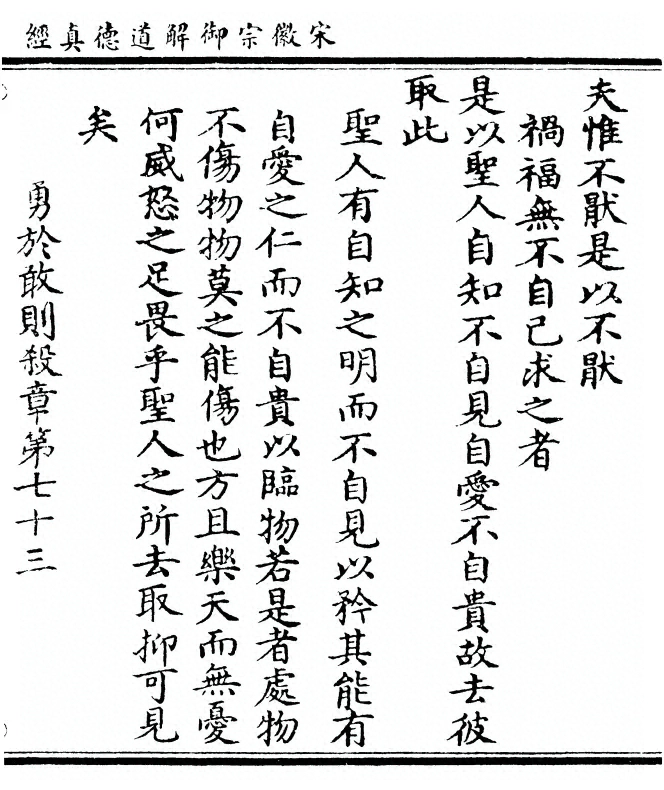 宋徽宗御解道德真經
夫惟不猒是以不猒
禍福無不自己求之者
是以聖人自知不自見自愛不自貴故去彼
取此
聖人有自知之明而不自見以矜其能有
自愛之仁而不自貴以臨物若是者處物
不傷物物莫之能傷也方且樂天而無憂
何威怒之足畏乎聖人之所去取抑可見
矣
勇於敢則殺章第七十三